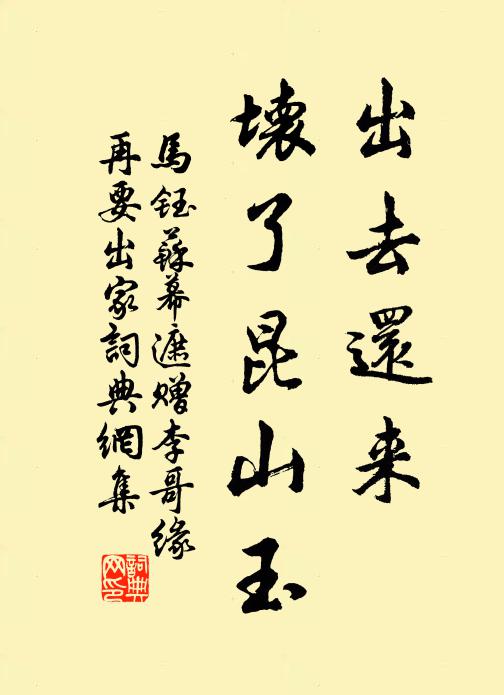 出去還来
壞了昆山玉
馬鈺蘇幕遮赠李哥缘
再要出家詞典網集
詞典网印